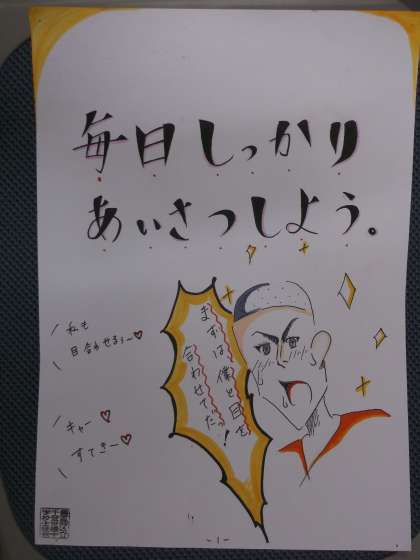 毎日しっかり
あいさつしよう。
まずは僕と目を
合わせてた!
私も
目合わせるぅ〜♡
キャー♡
すてきー♡
-1-